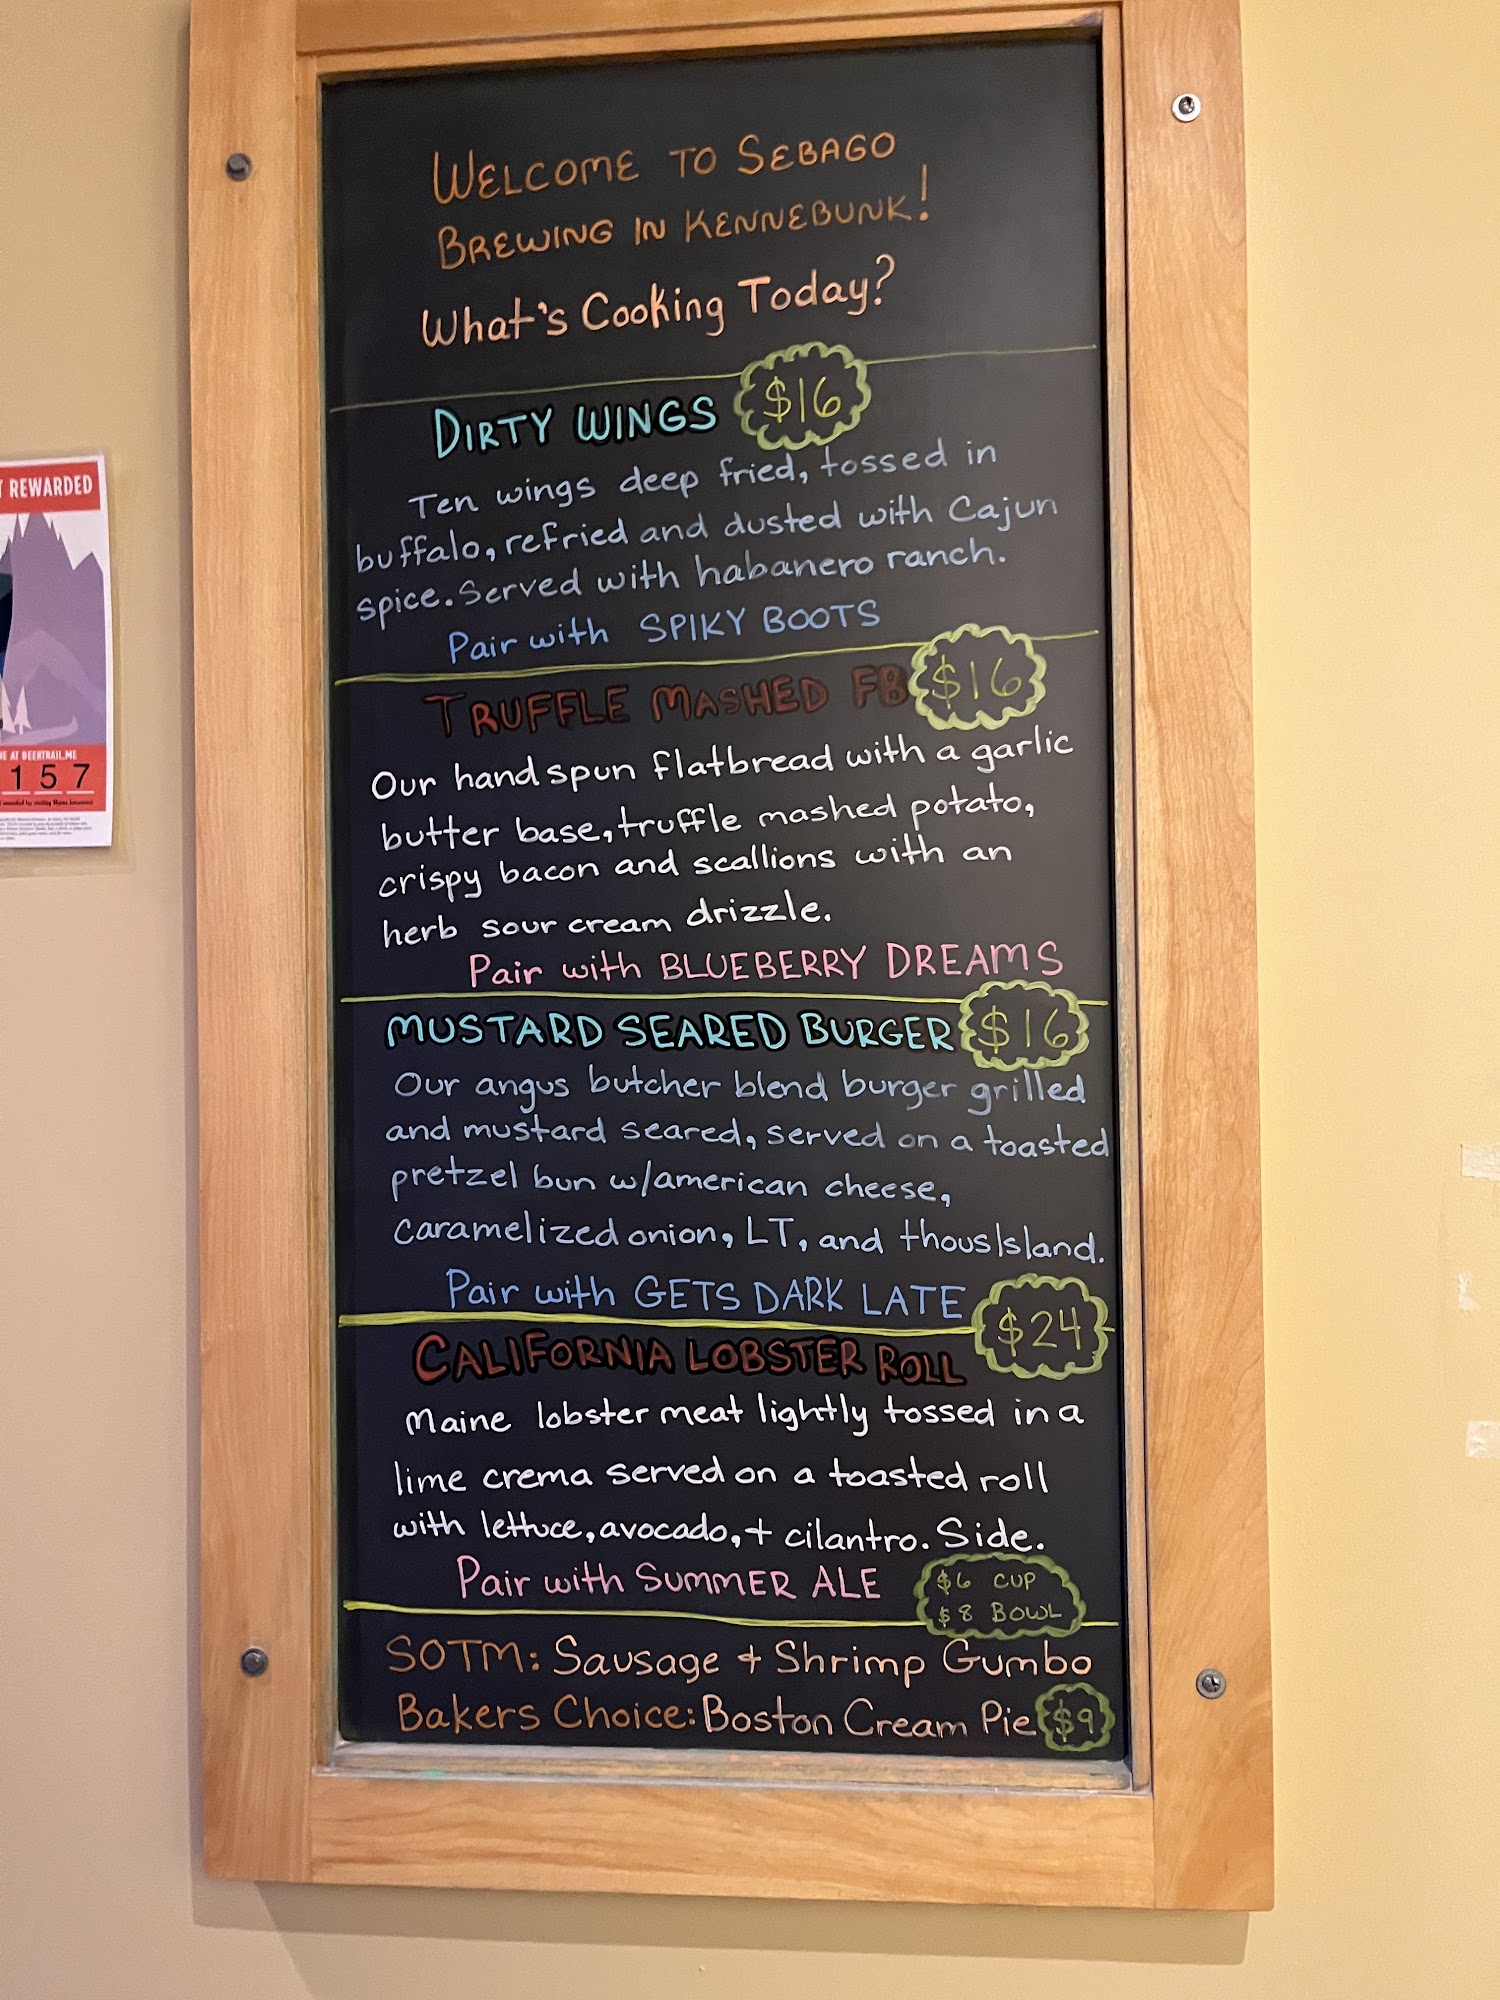 WELCOME TO SEBAGO
BREWING IN KENNEBUNK!
What's Cooking Today?
DIRTY WINGS $16
Ten wings deep fried, tossed in
buffalo, refried and dusted with Cajun
spice. Served with habanero ranch.
Pair with SPIKY BOOTS
TRUFFLE MASHED FB $16
Our hand spun flatbread with a garlic
butter base, truffle mashed potato,
crispy bacon and scallions with an
herb sour cream drizzle.
Pair with BLUEBERRY DREAMS
MUSTARD SEARED BURGER $16
Our angus butcher blend burger grilled
and mustard seared, served on a toasted
pretzel bun w/american cheese,
caramelized onion, LT, and thousIsland.
Pair with GETS DARK LATE
$24
CALIFORNIA LOBSTER ROLL
Maine lobster meat lightly tossed in a
lime crema served on a toasted roll
with lettuce, avocado, + cilantro. Side.
Pair with SUMMER ALE
$6 CUP
$8 BOWL
SOTM: Sausage + Shrimp Gumbo
Bakers Choice: Boston Cream Pie $9
REWARDED
AT BEERTRAIL.ME
157